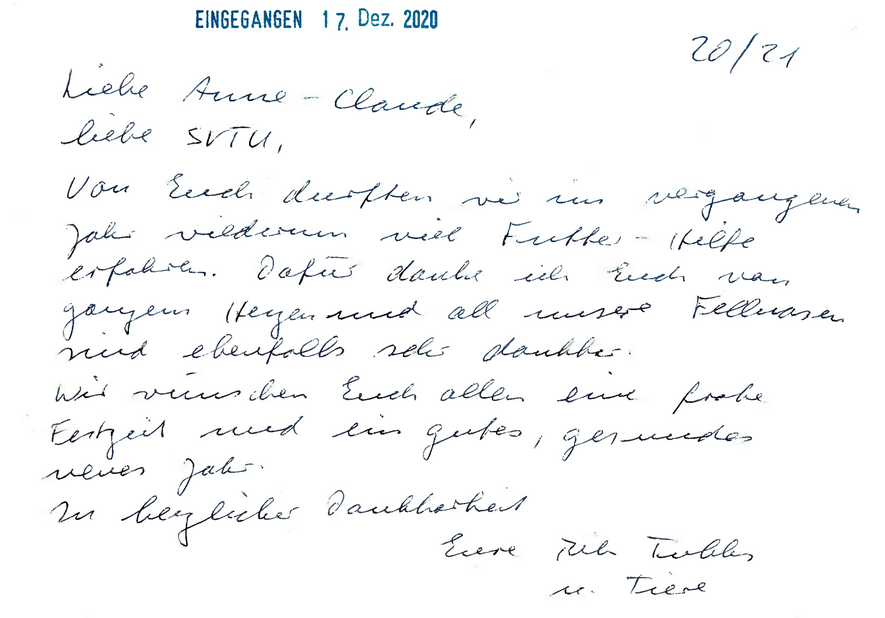 EINGEGANGEN 17. Dez. 2020
20/21
Liebe Anne-Claude,
liebe SVTU,
Von Euch durften wir im vergangenen
Jahr wiederum viel Futter-Hilfe
erfahren. Dafür danke ich Euch von
ganzem Herzen und all unsere Fellnasen
sind ebenfalls sehr dankbar.
Wir wünschen Euch allen eine frohe
Festzeit und ein gutes, gesundes
neues Jahr.
In herzlicher Dankbarkeit
Eure
u. Tiere